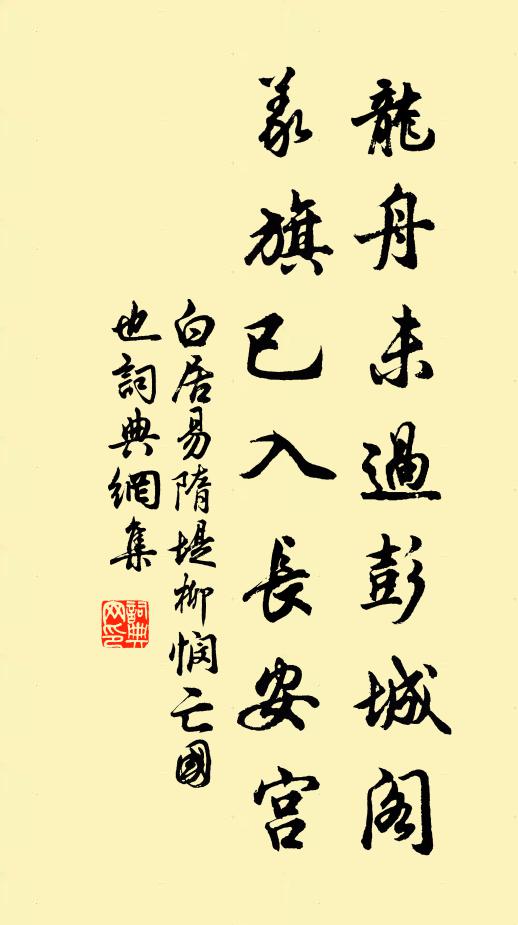 龍舟未過彭城閣
義旗已入長安宮
白居易隋堤柳憫亡國
也詞典網集
詞典網印